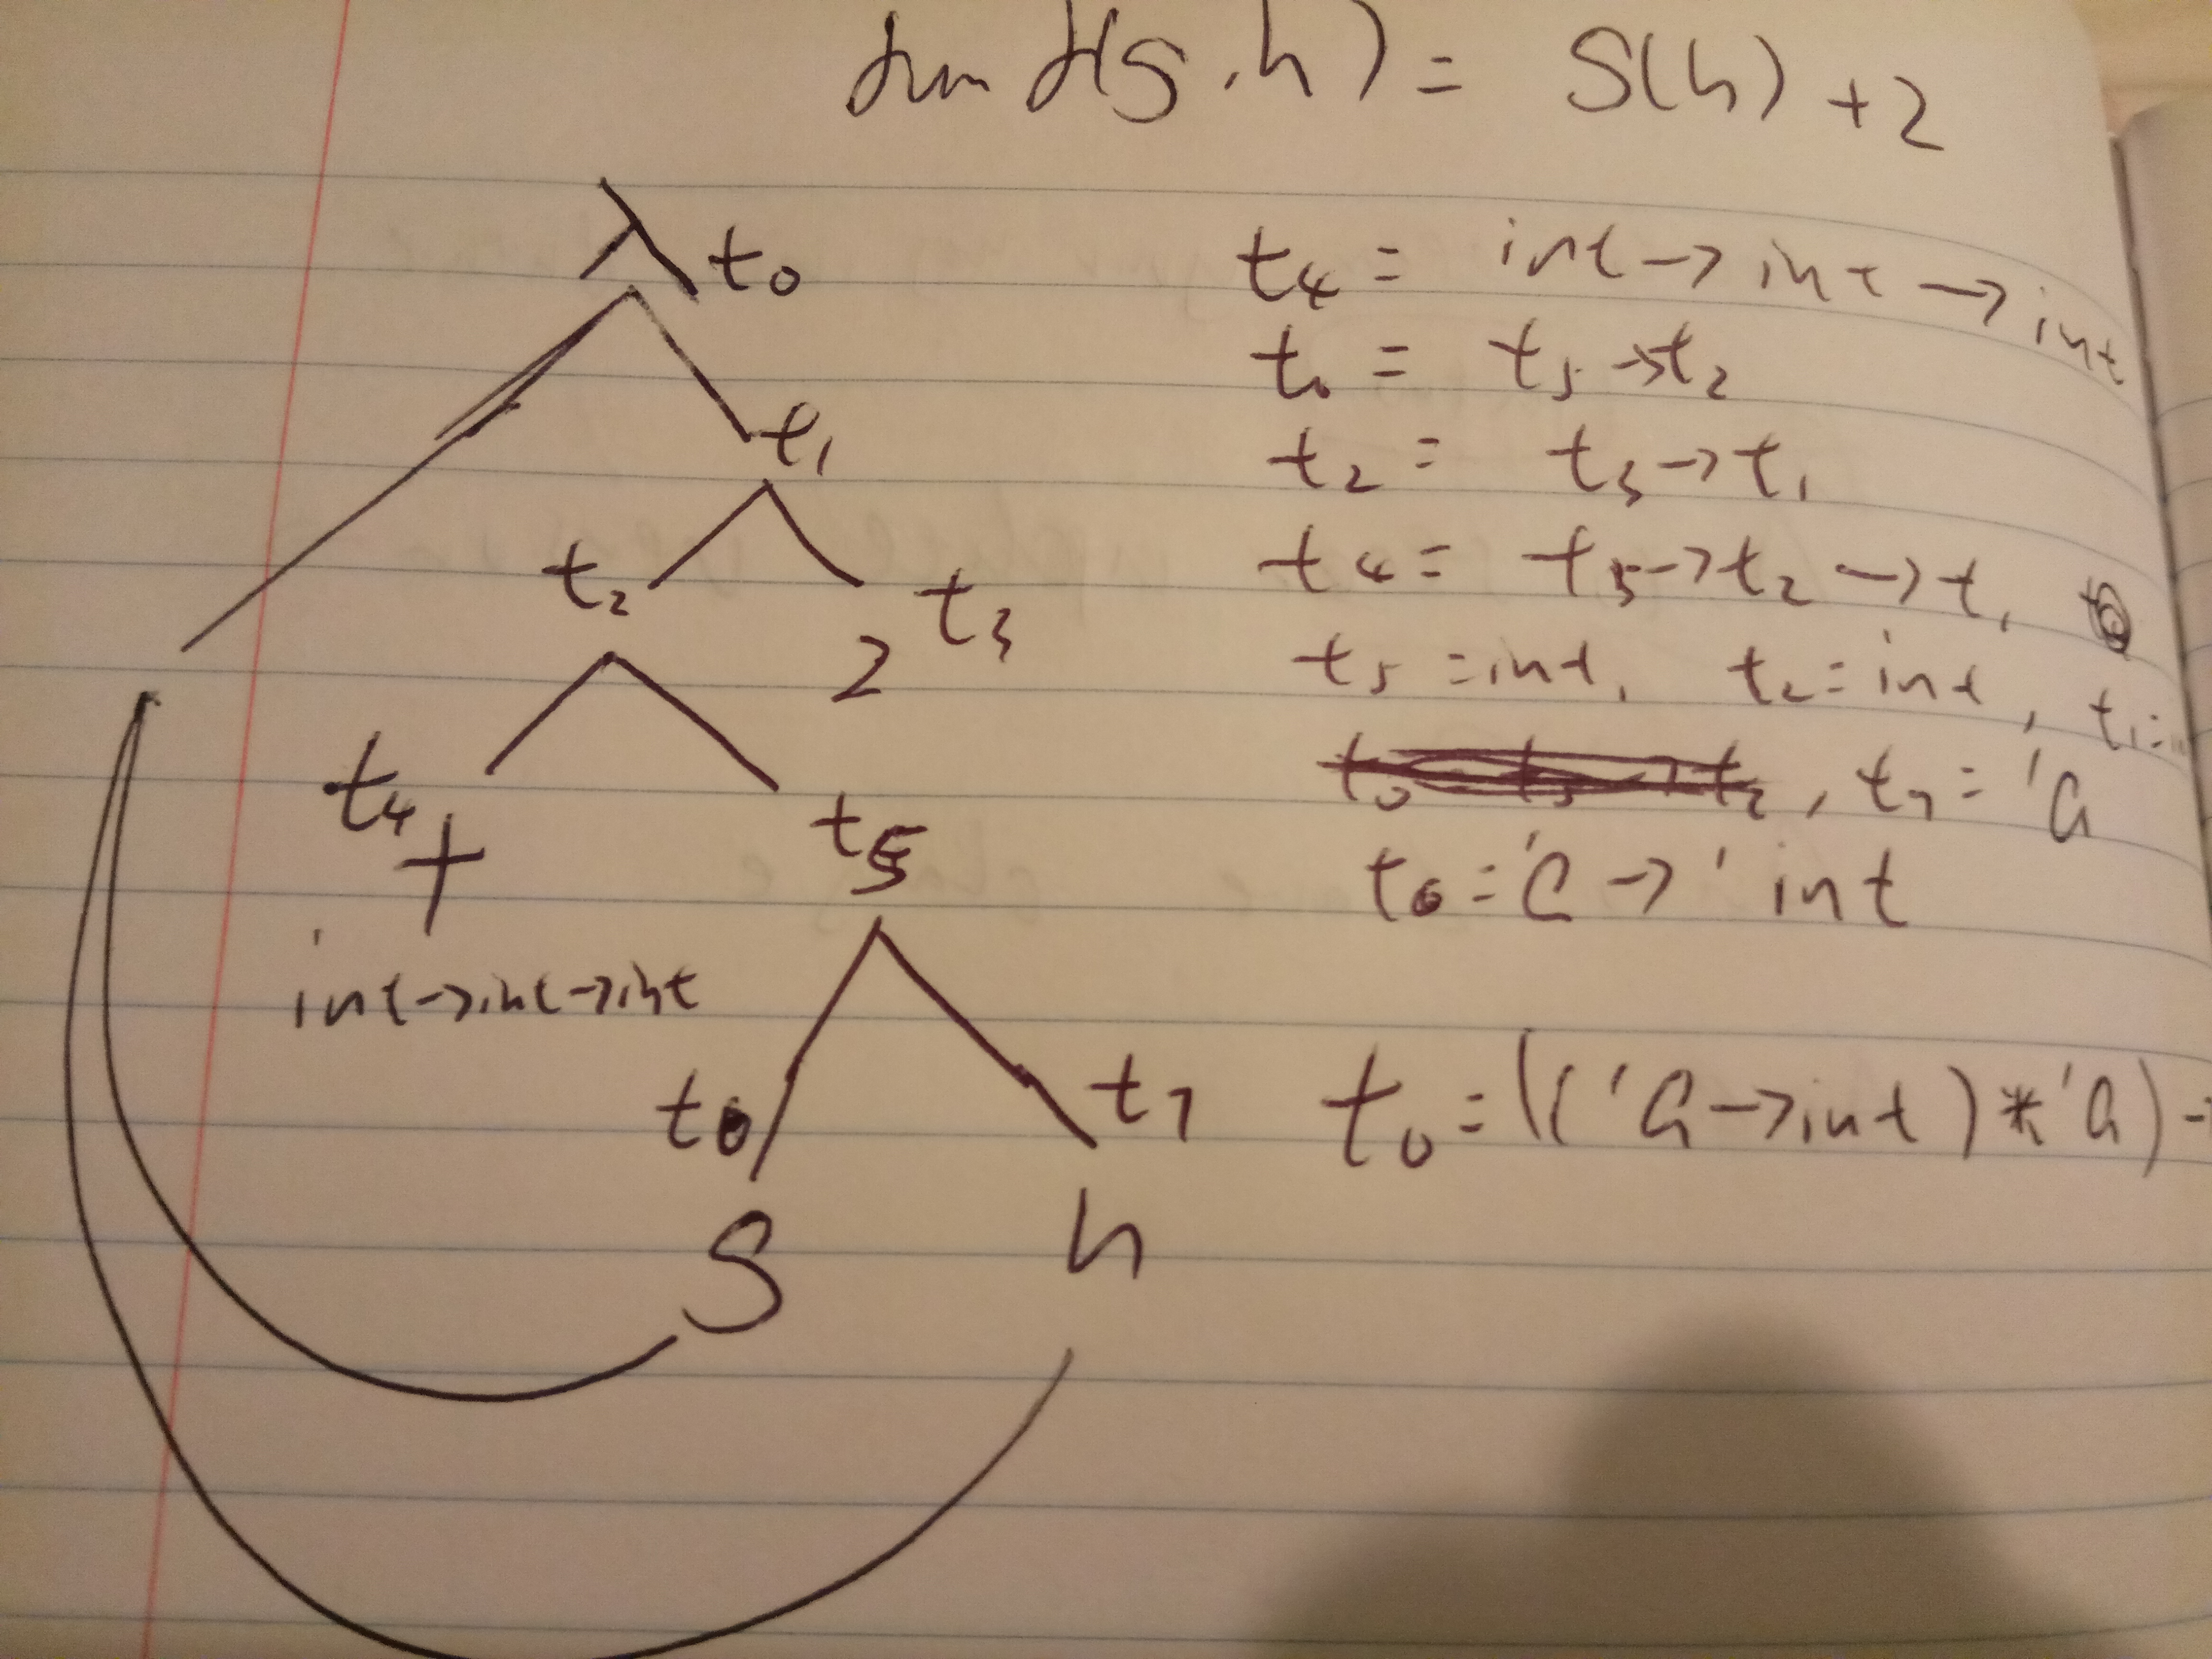 fun f(g,h) = g(h) + 2
λ t0
t1
t2 t3
2
t4 t5
+
int->int->int
t6 t7
g h
t4 = int -> int -> int
t. = t5 -> t2
t2 = t3 -> t1
t4 = t5 -> t2 -> t1
t5 = int, t2 = int, t1 =
, t7 = 'a
t6 = 'a -> ' int
t0 = (('a -> int) * 'a) -